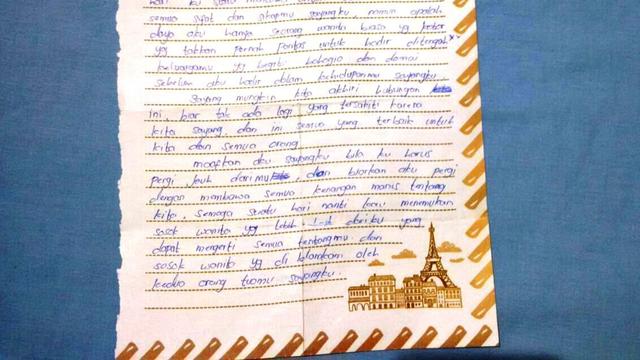 semua sifat dan sikapmu sayangku, namun apalah
daya aku hanya seorang wanita biasa yg kotor
yg takkan pernah pantas untuk hadir ditengah
keluargamu yg begitu bahagia dan damai
sebelum aku hadir dalam kehidupanmu sayangku.
Sayang mungkin kita akhiri hubungan
ini biar tak ada lagi yang tersakiti karena
kita sayang dan ini semua yang terbaik untuk
kita dan semua orang
maafkan aku sayangku bila ku harus
pergi jauh darimu, dan biarkan aku pergi
dengan membawa semua kenangan manis tentang
kita, semoga suatu hari nanti kau menemukan
sosok wanita yg lebih dariku yang
dapat mengerti semua tentangmu dan
sosok wanita yg di
kedua orang tuamu sayangku.